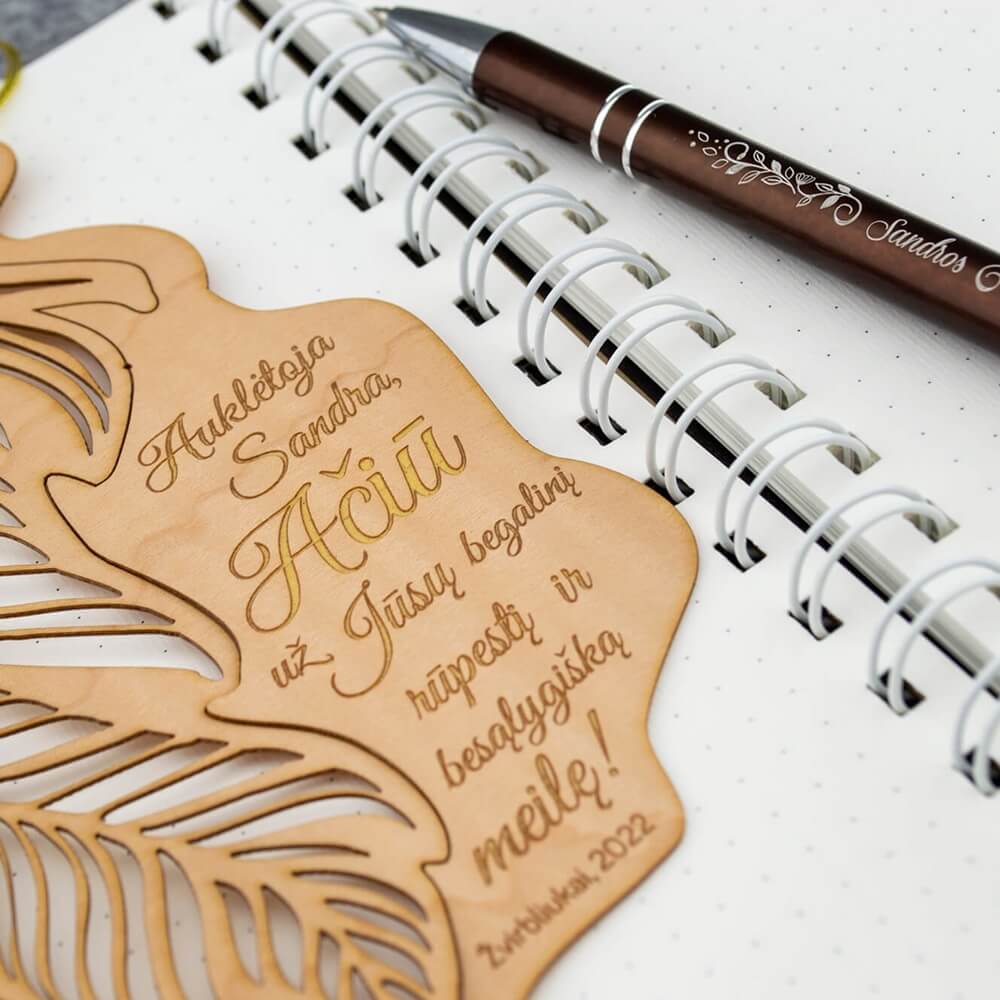 Auklėtoja
Sandra,
Ačiū
už Jūsų begalinį
rūpestį ir
besąlygišką
meilę!
Žvirbliukai, 2022
Sandros